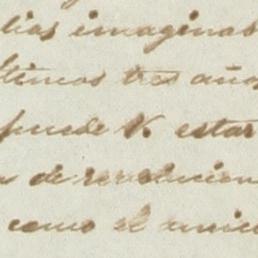 lias imaginas
ltimos tres años
puede V. estar
de revolucion
como el unic